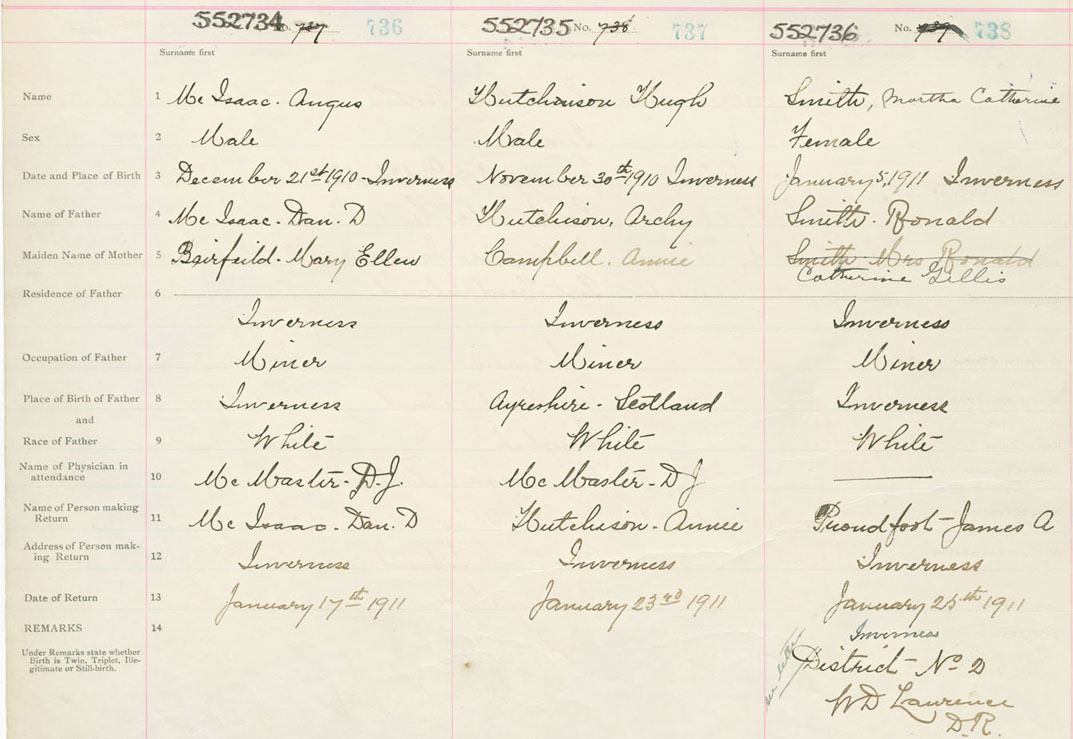 552734 No. 737 736 552735 No. 738 737 552736 No. 739 738
Surname first Surname first Surname first
Name 1 Mc Isaac. Angus Hutchinson Hugh Smith, Martha Catherine
Sex 2 Male Male Female
Date and Place of Birth 3 December 21st 1910 - Inverness November 30th 1910 Inverness January 5, 1911 Inverness
Name of Father 4 Mc Isaac. Dan. D Hutchison, Archy Smith. Ronald
Maiden Name of Mother 5 Beirfeild - Mary Ellen Campbell. Annie Smith Mrs Ronald
Catherine Gillis
Residence of Father 6
Inverness Inverness Inverness
Occupation of Father 7 Miner Miner Miner
Place of Birth of Father 8 Inverness Ayreshire - Scotland Inverness
and
Race of Father 9 White White White
Name of Physician in
attendance 10 Mc Master - D. J. Mc Master - D J
Name of Person making
Return 11 Mc Isaac - Dan. D Hutchison - Annie Proudfoot - James A
Address of Person mak-
ing Return 12 Inverness Inverness Inverness
Date of Return 13 January 17th 1911 January 23rd 1911 January 25th 1911
REMARKS 14 Inverness
Under Remarks state whether
Birth is Twin, Triplet, Ille-
gitimate or Still-birth.
District - No 2
W D Laurence
D. R.